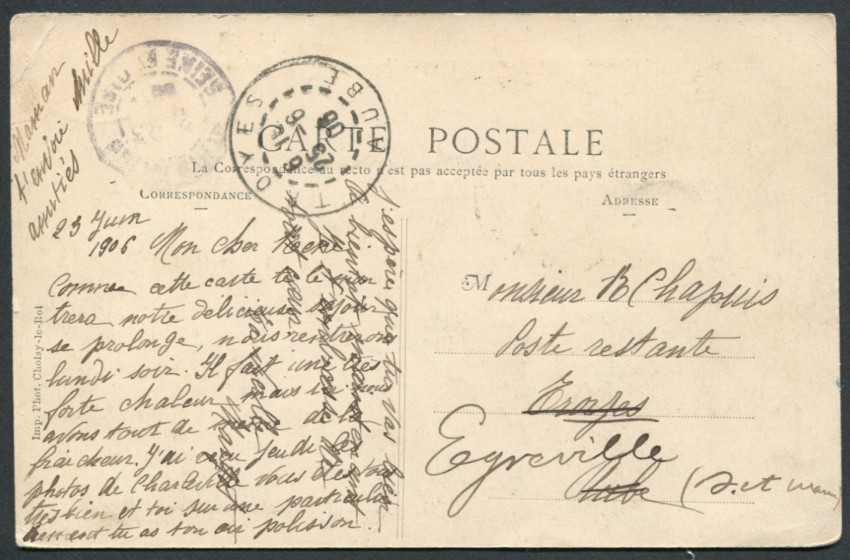 Maman
t'envoie mille
amitiés
SEINE ET OISE
TROYES AUBE
23 -6 06
CARTE POSTALE
La Correspondance au recto n'est pas acceptée par tous les pays étrangers
CORRESPONDANCE
ADRESSE
23 Juin
1906 Mon cher René
Comme cette carte te le mon
trera notre délicieuse séjour
se prolonge, nous rentrerons
lundi soir. Il fait une très
forte chaleur mais ici nous
avons tout de même de la
fraîcheur. J'ai reçu jeudi les
photos de Charleville vous êtes tous
très bien et toi sur une particulièrement
tu as ton air polisson.
J'espère que tu vas bien
Monsieur R Chapuis
Poste restante
Troyes
Egreville
Aube (S. et Marne)
Imp. Phot. Choisy-le-Roi